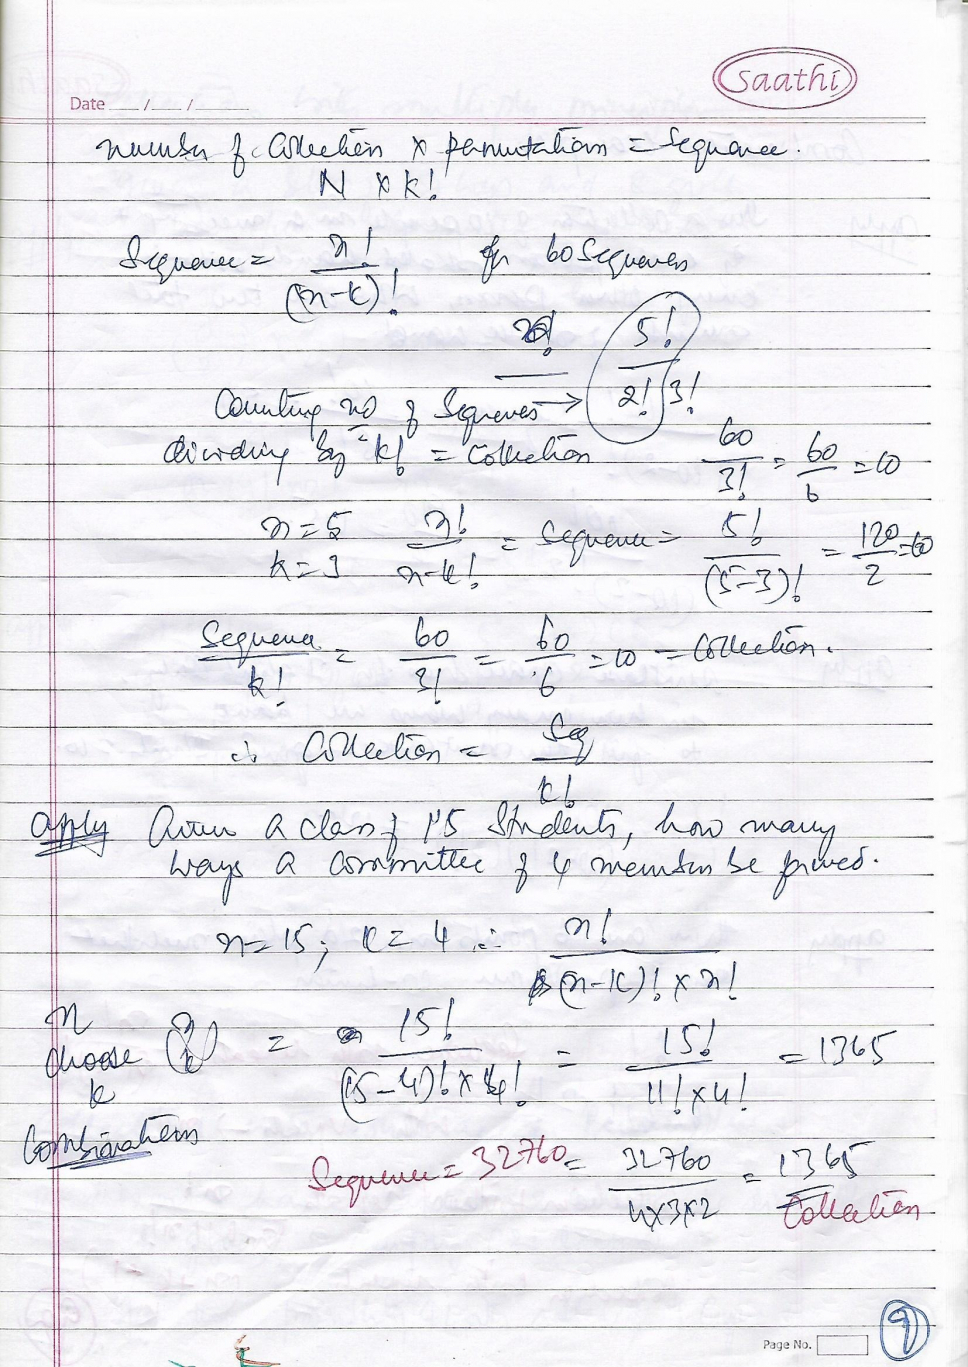 Saathi
Date / /
number of collection × permutations = Sequence.
N × k!
Sequence = n! / (n-k)! for 60 Sequences
5! / 2! 3!
Counting no of Sequences →
dividing by k! = Collection 60 / 3! = 60 / 6 = 10
n = 5 n! / n-k! = Sequence = 5! / (5-3)! = 120 / 2 = 60
k = 3
Sequence / k! = 60 / 3! = 60 / 6 = 10 = Collection.
∴ Collection = Seq / k!
apply Given a class of 15 Students, how many
ways a committee of 4 members be formed.
n = 15; k = 4 ∴ n! / (n-k)! × n!
n choose k (n k) = 15! / (15-4)! × 4! = 15! / 11! × 4! = 1365
Combinations
Sequence = 32760 = 32760 / 4×3×2 = 1365
Collection
Page No.
9